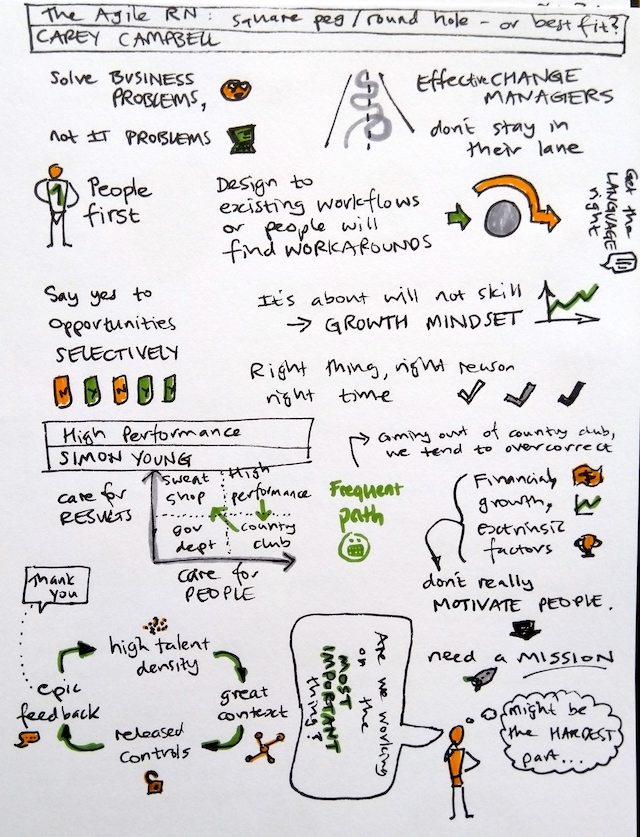 The Agile RN: square peg/round hole - or best fit?
CAREY CAMPBELL
Solve BUSINESS
PROBLEMS,
not IT PROBLEMS
Effective CHANGE
MANAGERS
don't stay in
their lane
1
People
first
Design to
existing workflows
or people will
find WORKAROUNDS
Get the
LANGUAGE
right
Say yes to
opportunities
SELECTIVELY
N Y N Y Y
It's about will not skill
→ GROWTH MINDSET
Right thing, right reason
right time
High Performance
SIMON YOUNG
care for
RESULTS
sweat
shop
High
performance
gov
dept
country
club
care for
PEOPLE
Frequent
path
coming out of country club,
we tend to overcorrect
Financial,
growth,
extrinsic
factors
don't really
MOTIVATE PEOPLE.
need a MISSION
Might be
the HARDEST
part...
Thank
you
high talent
density
great
context
released
controls
epic
feedback
Are we working
on the
MOST
IMPORTANT
thing?